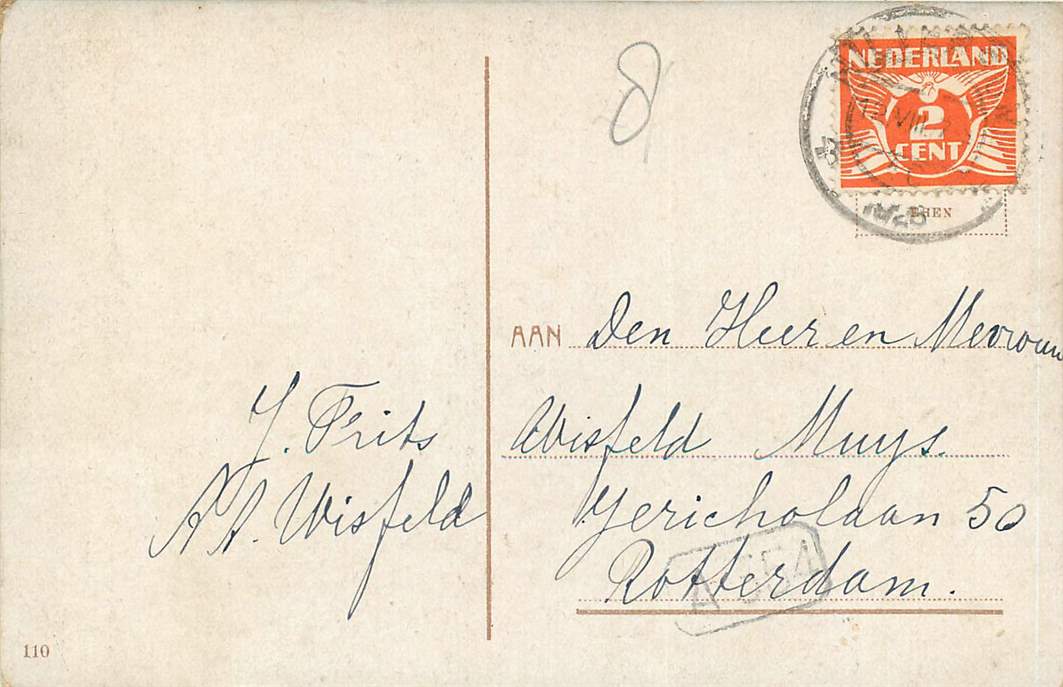 8
NEDERLAND
2
CENT
AAN Den Heer en Mevrouw
Wisfeld Muys.
Jericholaan 50
Rotterdam.
J. Frits
A A. Wisfeld
110